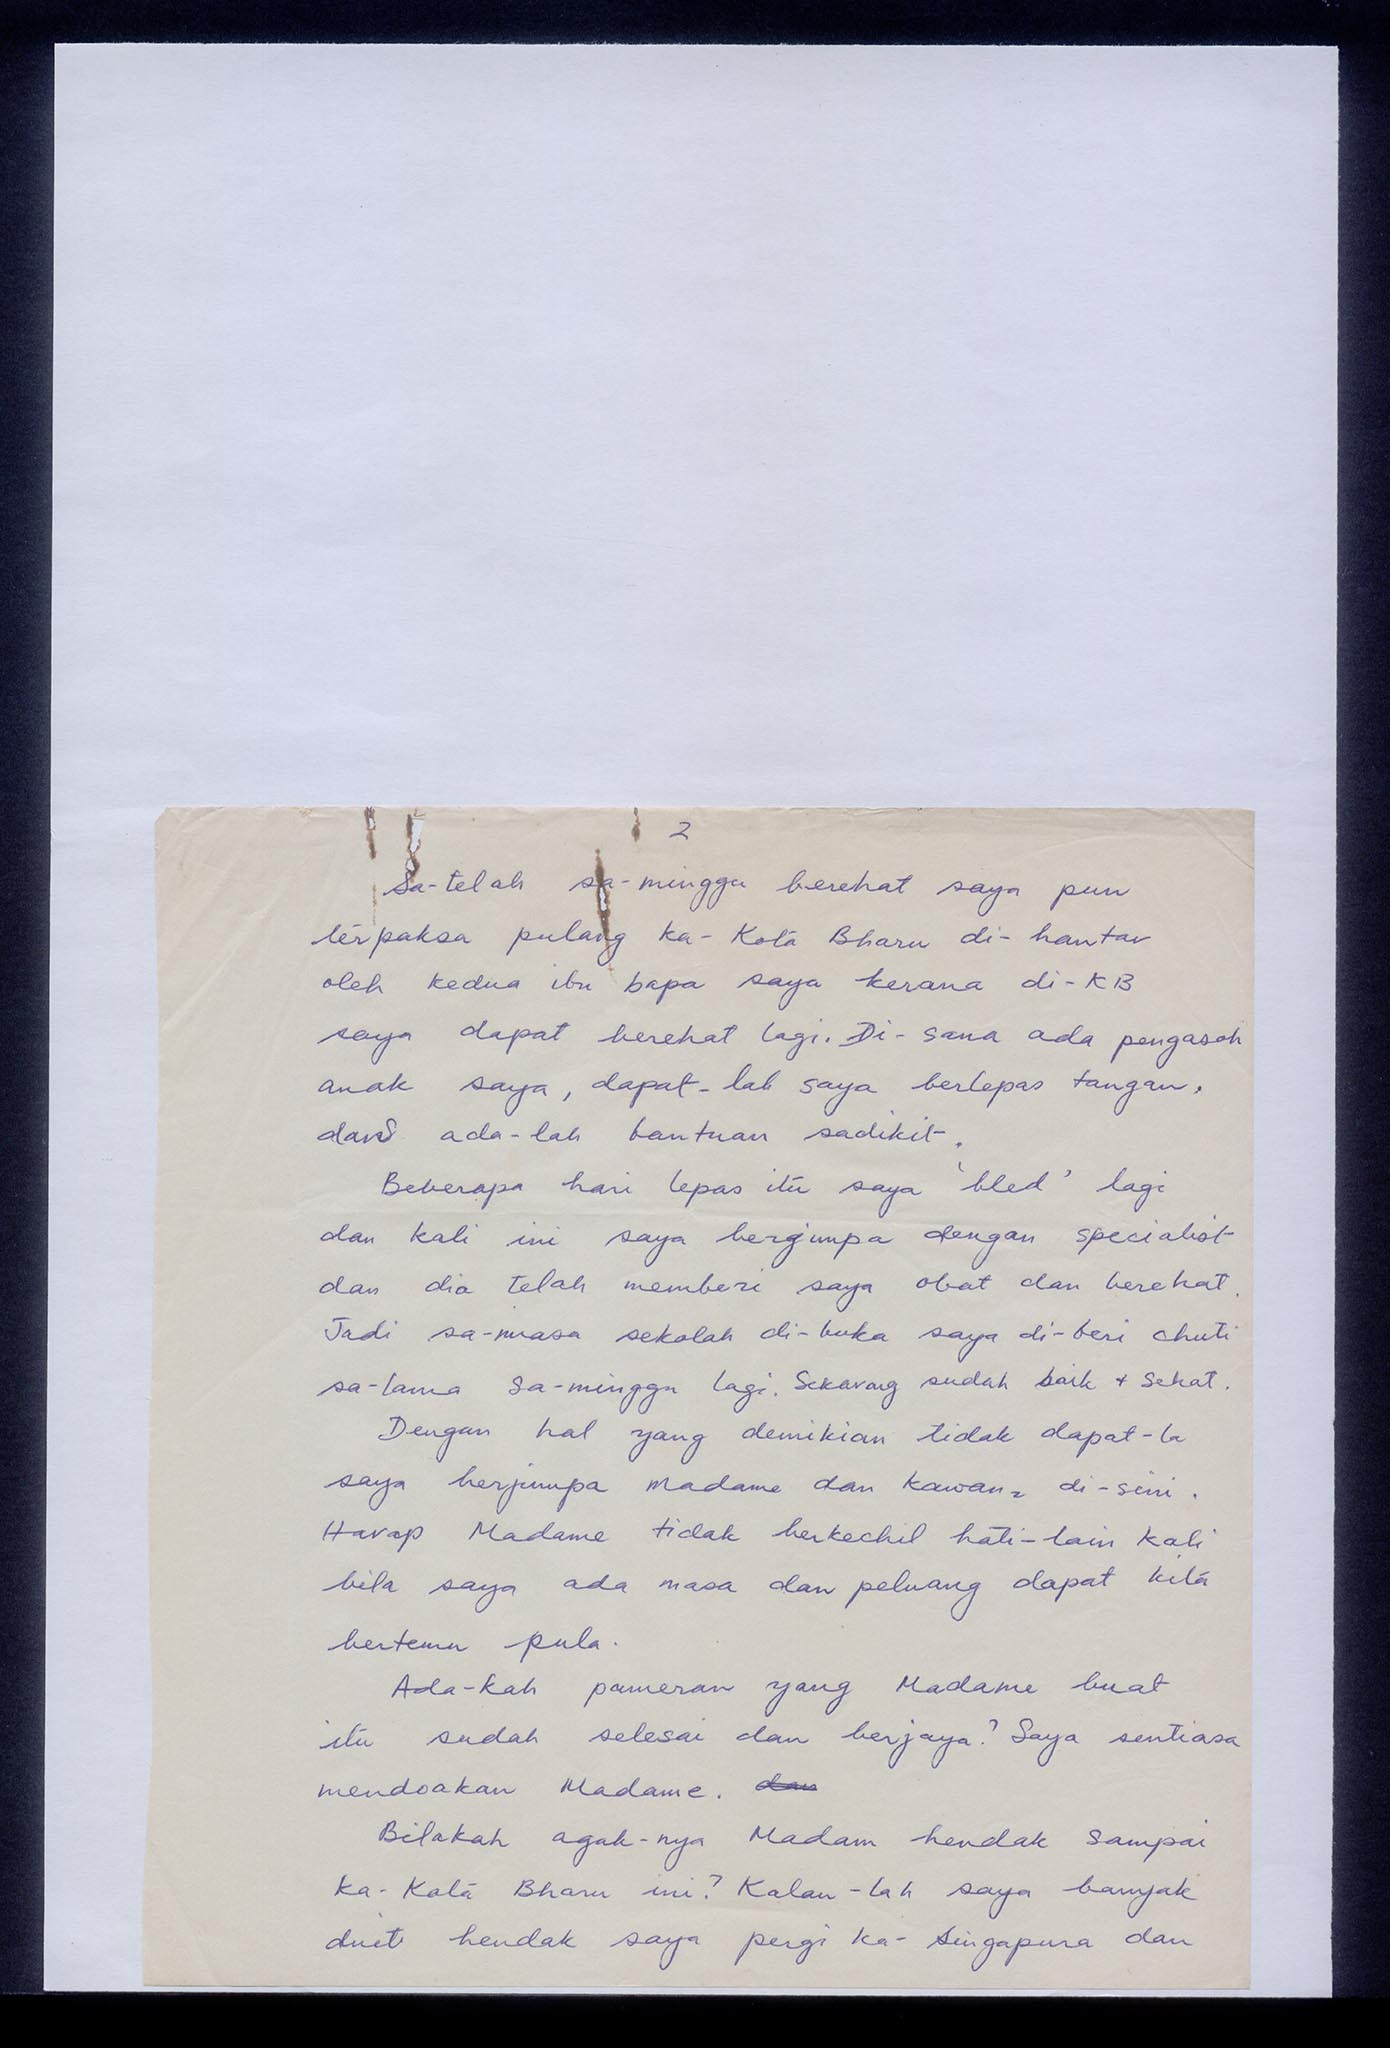 2
Sa-telah sa-minggu berehat saya pun
terpaksa pulang ka-Kota Bharu di-hantar
oleh kedua ibu bapa saya kerana di-KB
saya dapat berehat lagi. Di-sana ada pengasoh
anak saya, dapat-lah saya berlepas tangan,
dan ada-lah bantuan sadikit.
Beberapa hari lepas itu saya 'bled' lagi
dan kali ini saya berjumpa dengan specialist
dan dia telah memberi saya obat dan berehat.
Jadi sa-masa sekolah di-buka saya di-beri chuti
sa-lama sa-minggu lagi. Sekarang sudah baik + sehat.
Dengan hal yang demikian tidak dapat-la
saya berjumpa madame dan kawan2 di-sini.
Harap Madame tidak berkechil hati-lain kali
bila saya ada masa dan peluang dapat kita
bertemu pula.
Ada-kah pameran yang Madame buat
itu sudah selesai dan berjaya? Saya sentiasa
mendoakan Madame. dan
Bilakah agak-nya Madam hendak sampai
ka-Kota Bharu ini? Kalau-lah saya banyak
duit hendak saya pergi ka-Singapura dan